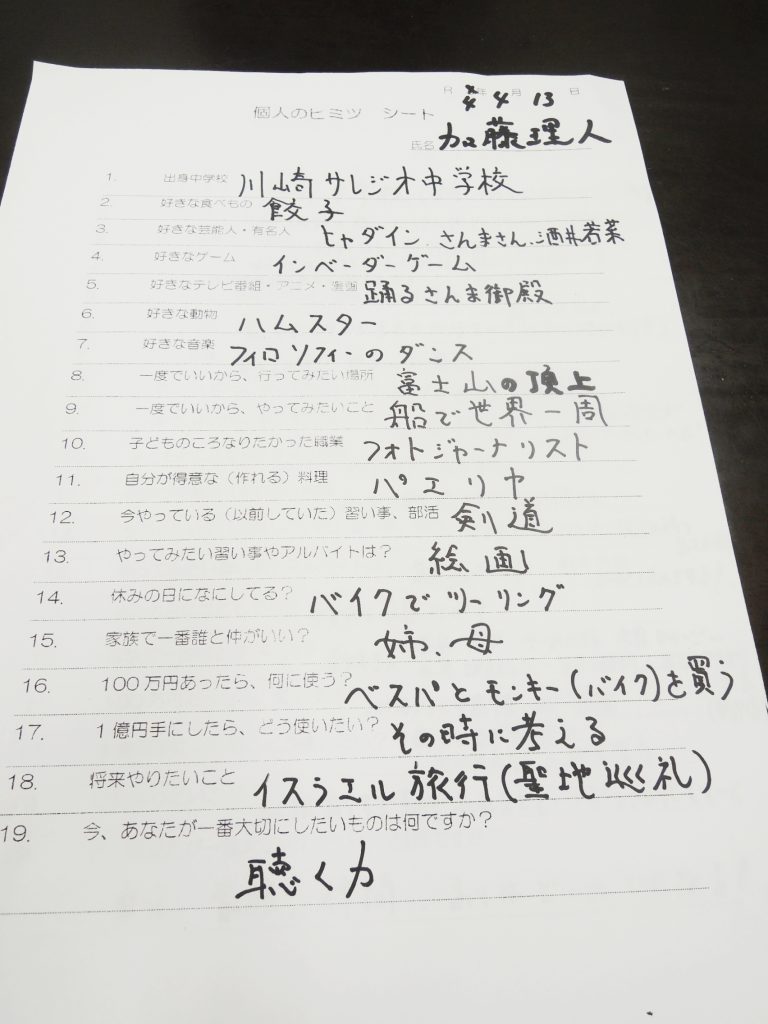 R 4年 4月 13日
個人のヒミツ シート
氏名 加藤理人
1. 出身中学校 川崎サレジオ中学校
2. 好きな食べもの 餃子
3. 好きな芸能人・有名人 ヒャダイン、さんまさん、酒井若菜
4. 好きなゲーム インベーダーゲーム
5. 好きなテレビ番組・アニメ・漫画 踊るさんま御殿
6. 好きな動物 ハムスター
7. 好きな音楽 フィロソフィーのダンス
8. 一度でいいから、行ってみたい場所 富士山の頂上
9. 一度でいいから、やってみたいこと 船で世界一周
10. 子どものころなりたかった職業 フォトジャーナリスト
11. 自分が得意な（作れる）料理 パエリヤ
12. 今やっている（以前していた）習い事、部活 剣道
13. やってみたい習い事やアルバイトは？ 絵画
14. 休みの日になにしてる？ バイクでツーリング
15. 家族で一番誰と仲がいい？ 姉、母
16. 100万円あったら、何に使う？ ベスパとモンキー(バイク)を買う
17. 1億円手にしたら、どう使いたい？ その時に考える
18. 将来やりたいこと イスラエル旅行(聖地巡礼)
19. 今、あなたが一番大切にしたいものは何ですか？
聴く力